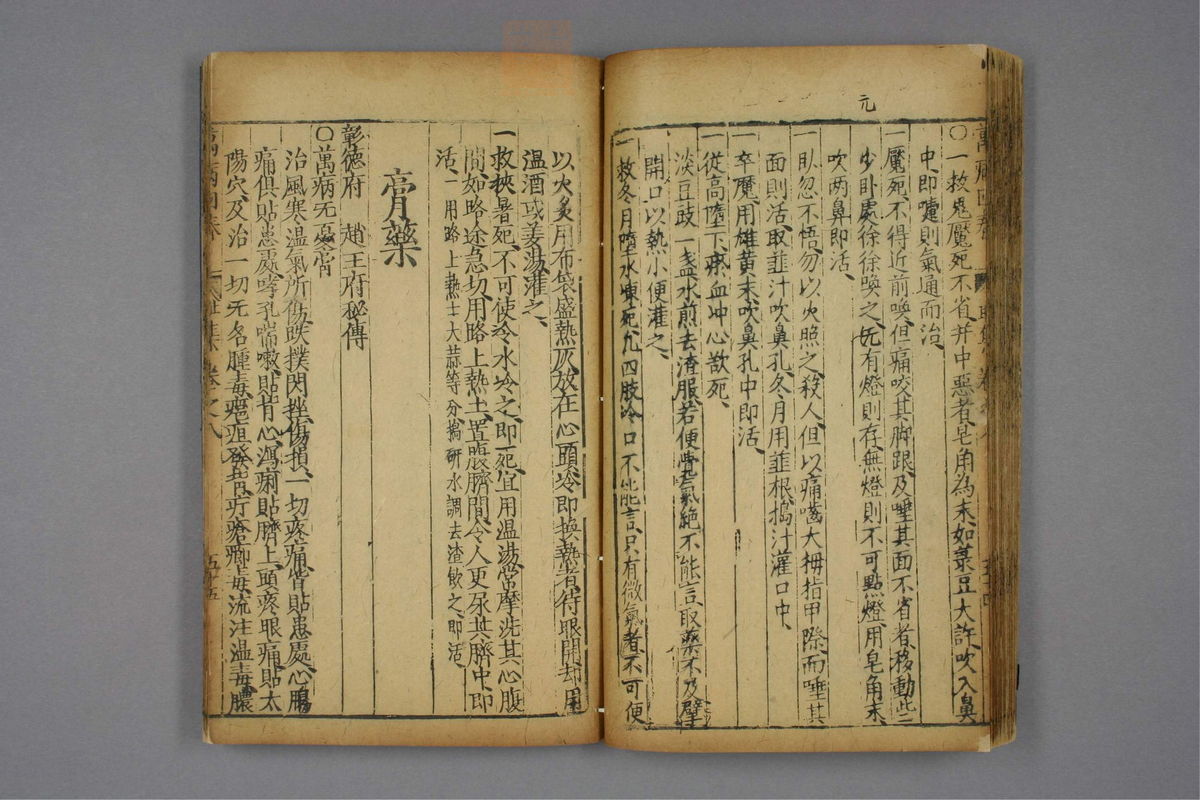 元
〇一救鬼魘死不省并中惡者皂角為末如菉豆大許吹入鼻
中即嚏則氣通而治
一魘死不得近前喚但痛咬其脚跟及唾其面不省者移動些
少卧處徐徐喚之无有燈則存無燈則不可點燈用皂角末
吹两鼻即活
一卧忽不悟勿以火照之殺人但以痛嚙大拇指甲際而唾其
面則活取韮汁吹鼻孔冬月用韮根搗汁灌口中
一卒魘用雄黄末吹鼻孔中即活
一從高墮下瘀血冲心欲死
淡豆豉一盞水煎去渣服若便覺氣絶不能言取藥不及擘
開口以熱小便灌之
一救冬月墮水凍死九四肢冷口不能言只有微氣者不可便
以火炙用布袋盛熱灰放在心頭冷即换熱者待眼開却用
温酒或姜湯灌之
一救挾暑死不可使冷水冷之即死宜用温湯常摩洗其心腹
間如路途急切用路上熱土置腹臍間令人更尿其臍中即
活一用路上熱土大蒜等分搗研水調去渣飲之即活
膏藥
彰德府 趙王府秘傳
〇萬病无憂膏
治風寒温氣所傷跌撲閃挫傷損一切疼痛皆貼患處心腸
痛俱貼患處哮孔喘嗽貼背心瀉痢貼臍上頭疼眼痛貼太
陽穴及治一切无名腫毒癰疽發背疔瘡癤毒流注温毒膿
萬病回春
卷之八
五十五